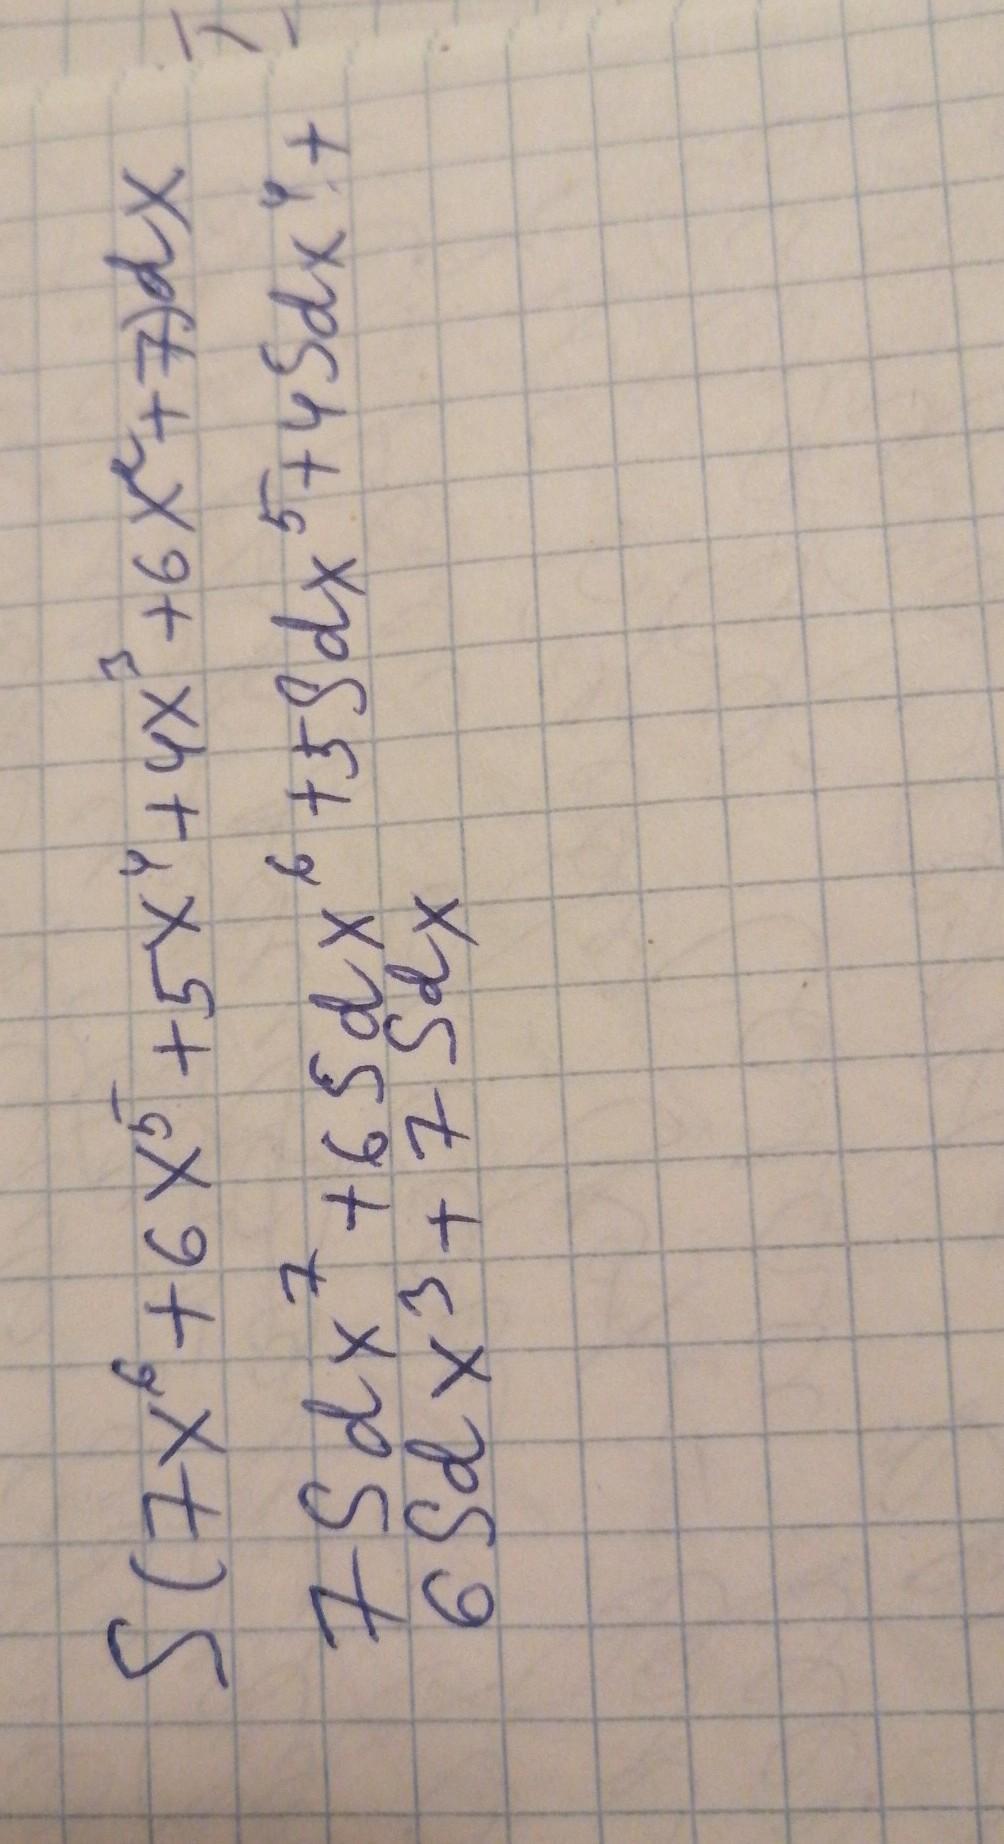 ∫(7x⁶+6x⁵+5x⁴+4x³+6x²+7)dx
7∫dx⁷+6∫dx⁶+5∫dx⁵+4∫dx⁴+
6∫dx³+7∫dx